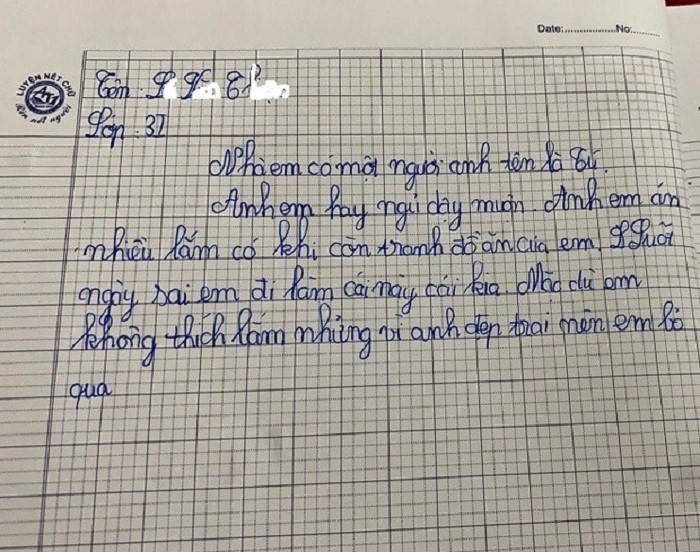 Date:..................No:.........
LUYỆN NÉT CHỮ
Rèn nết người
Tên
Lớp: 3I
Nhà em có một người anh tên là Tú.
Anh em hay ngủ dậy muộn. Anh em ăn
nhiều lắm có khi còn tranh đồ ăn của em. Suốt
ngày sai em đi làm cái này cái kia. Mặc dù em
không thích lắm nhưng vì anh đẹp trai nên em bỏ
qua